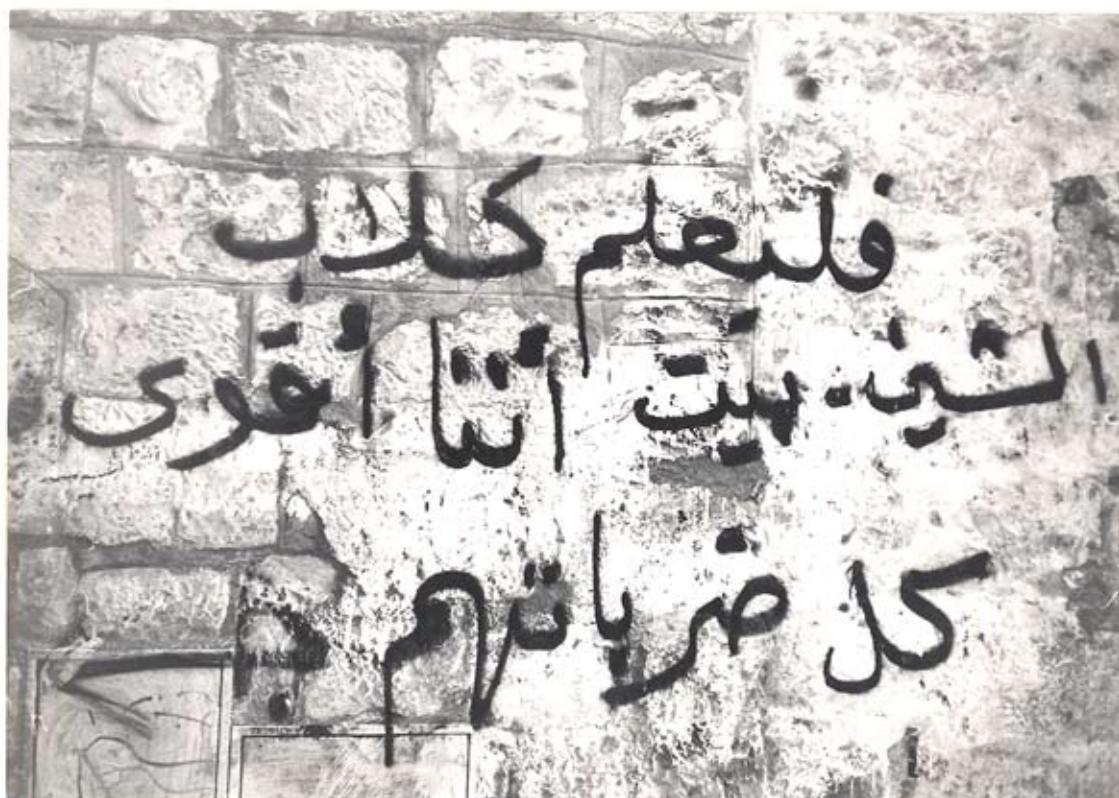 فليعلم كلاب
الشين.بيت اننا أقوى
كل ضرباتهم